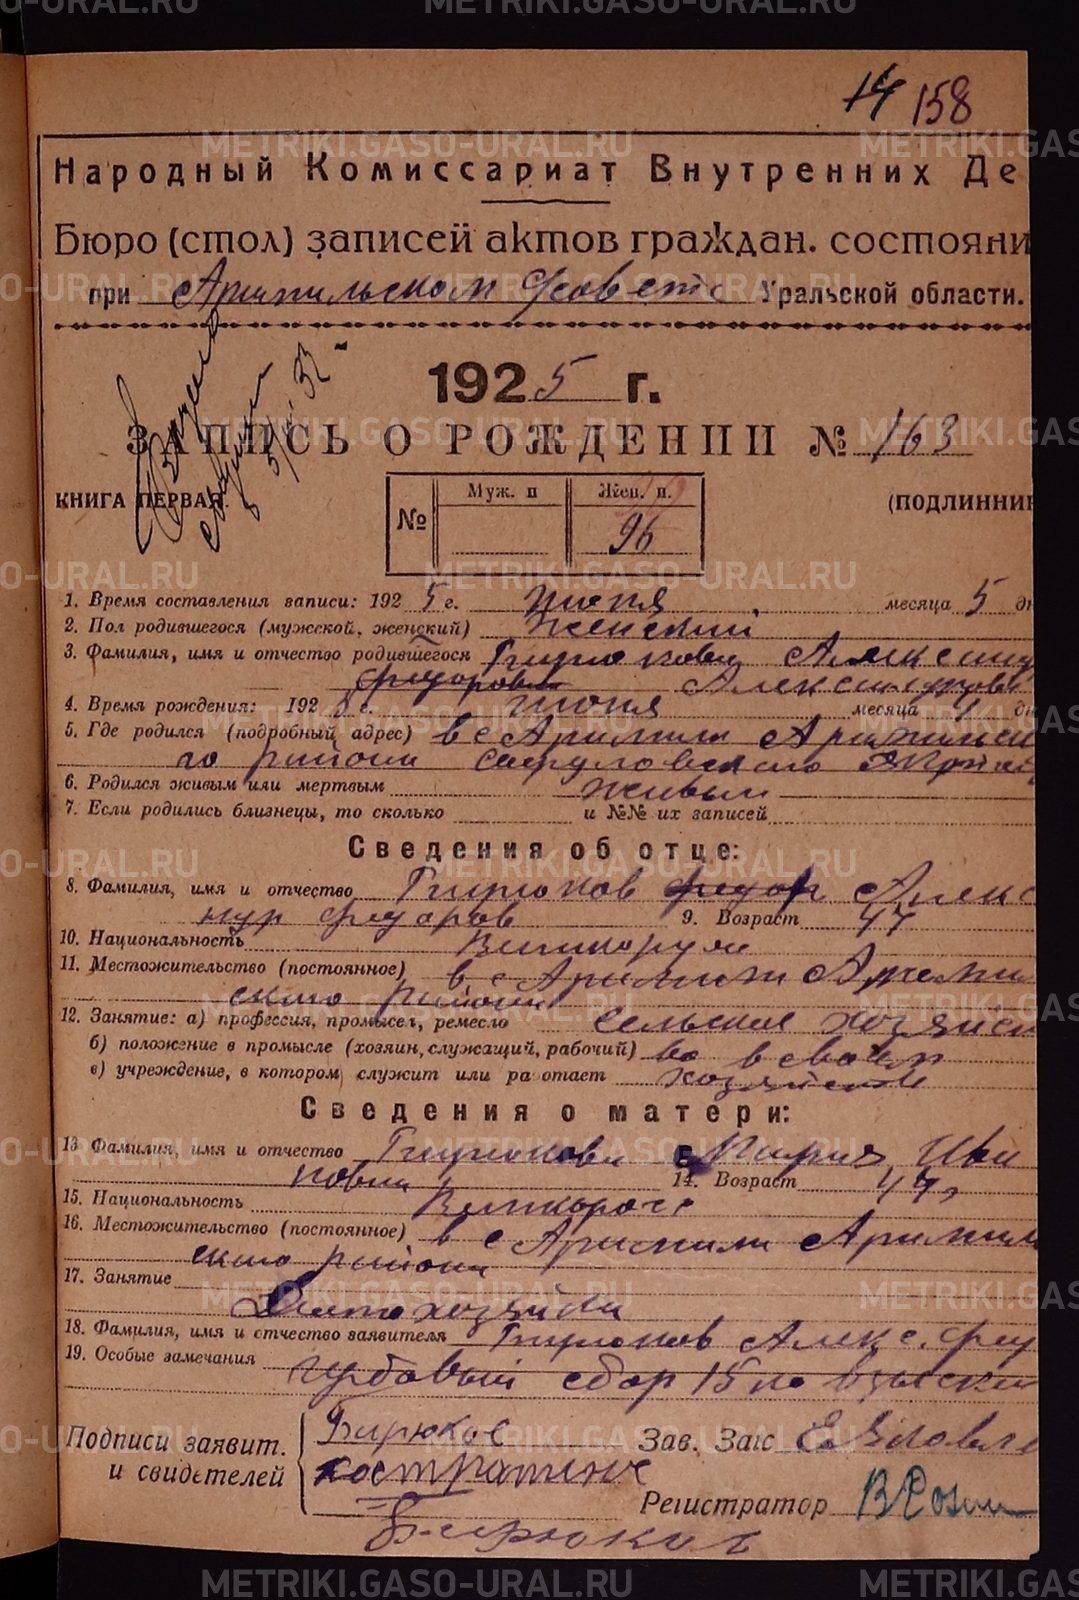 14 158
Народный Комиссариат Внутренних Де
Бюро (стол) записей актов граждан. состояни
при Арамильском Совете Уральской области.
1925 г.
ЗАПИСЬ О РОЖДЕНИИ № 163
КНИГА ПЕРВАЯ. (ПОДЛИННИК
№ Муж. п Жен. п.
96
1. Время составления записи: 1925 г. июня месяца 5 дн
2. Пол родившегося (мужской, женский) Женский
3. Фамилия, имя и отчество родившегося Бирюкова Александ
Федоровна Александровн
4. Время рождения: 1925 г. июня месяца 4 дн
5. Где родился (подробный адрес) в с Арамили Арамильск
го района Свердловского Округа
6. Родился живым или мертвым живым
7. Если родились близнецы, то сколько и №№ их записей
Сведения об отце:
8. Фамилия, имя и отчество Бирюков Федор Алекс
ндр Федоров 9. Возраст 47
10. Национальность Великорус
11. Местожительство (постоянное) в с Арамили Арами
ского района
12. Занятие: а) профессия, промысел, ремесло сельское хозяйст
б) положение в промысле (хозяин, служащий, рабочий) во в своем
в) учреждение, в котором служит или ра отает хозяйстве
Сведения о матери:
13 Фамилия, имя и отчество Бирюкова Мария Ива
новна 14. Возраст 47
15. Национальность Великоросс
16. Местожительство (постоянное) в с Арамили Арамил
ского района
17. Занятие
Домохозяйка
18. Фамилия, имя и отчество заявителя Бирюков Алекс. Фед
19. Особые замечания гербовый сбор 15 ко взыскан
Подписи заявит. и свидетелей Бирюков Зав. Загс
Регистратор
Бирюков
METRIKI.GASO-URAL.RU